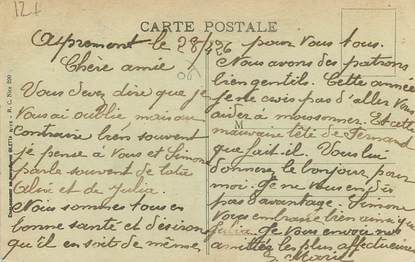 124
CARTE POSTALE
Apremont le 28/426
Chère amie
Vous devez dire que je
Vous ai oublié, mais au
Contraire bien souvent
je pense à Vous et Simone
parle souvent de tatie
et de Julia.
Nous sommes tous en
bonne santé et désirons
qu'il en soit de même
pour vous tous.
Nous avons des patrons
bien gentils. Cette année
je ne crois pas d'aller Vous
aider à moissonner. Et cette
mauvaise tête de Fernand
que fait-il. Vous lui
donnerez le bonjour pour
moi. Je ne vous en dis
pas davantage. Simone
Vous embrasse bien ainsi que
Julia. Je Vous envoie nos
amitiés les plus affectueuses
Marie
M
R. C. Nice 220